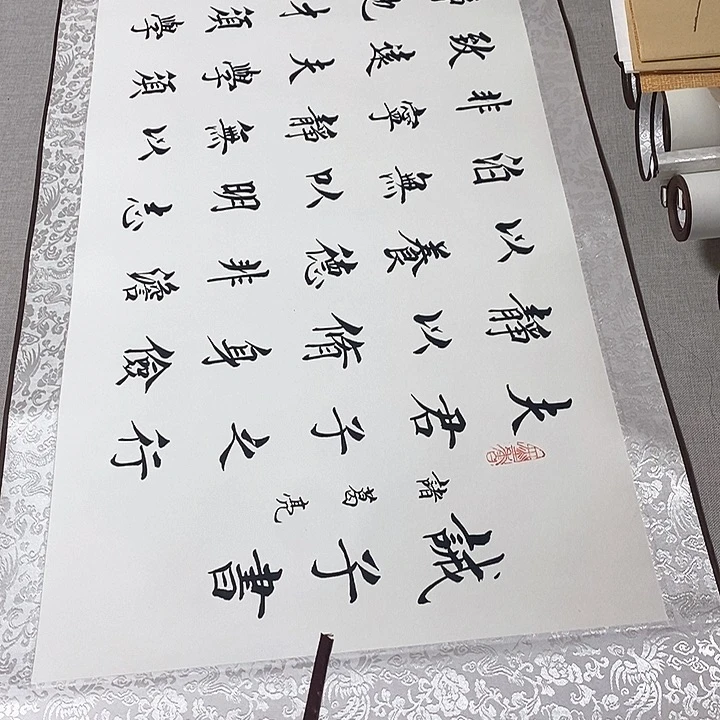 誡子書
諸葛亮
夫君子之行
靜以脩身儉
以養德非澹
泊無以明志
非寧靜無以
致遠夫學須
也才須學